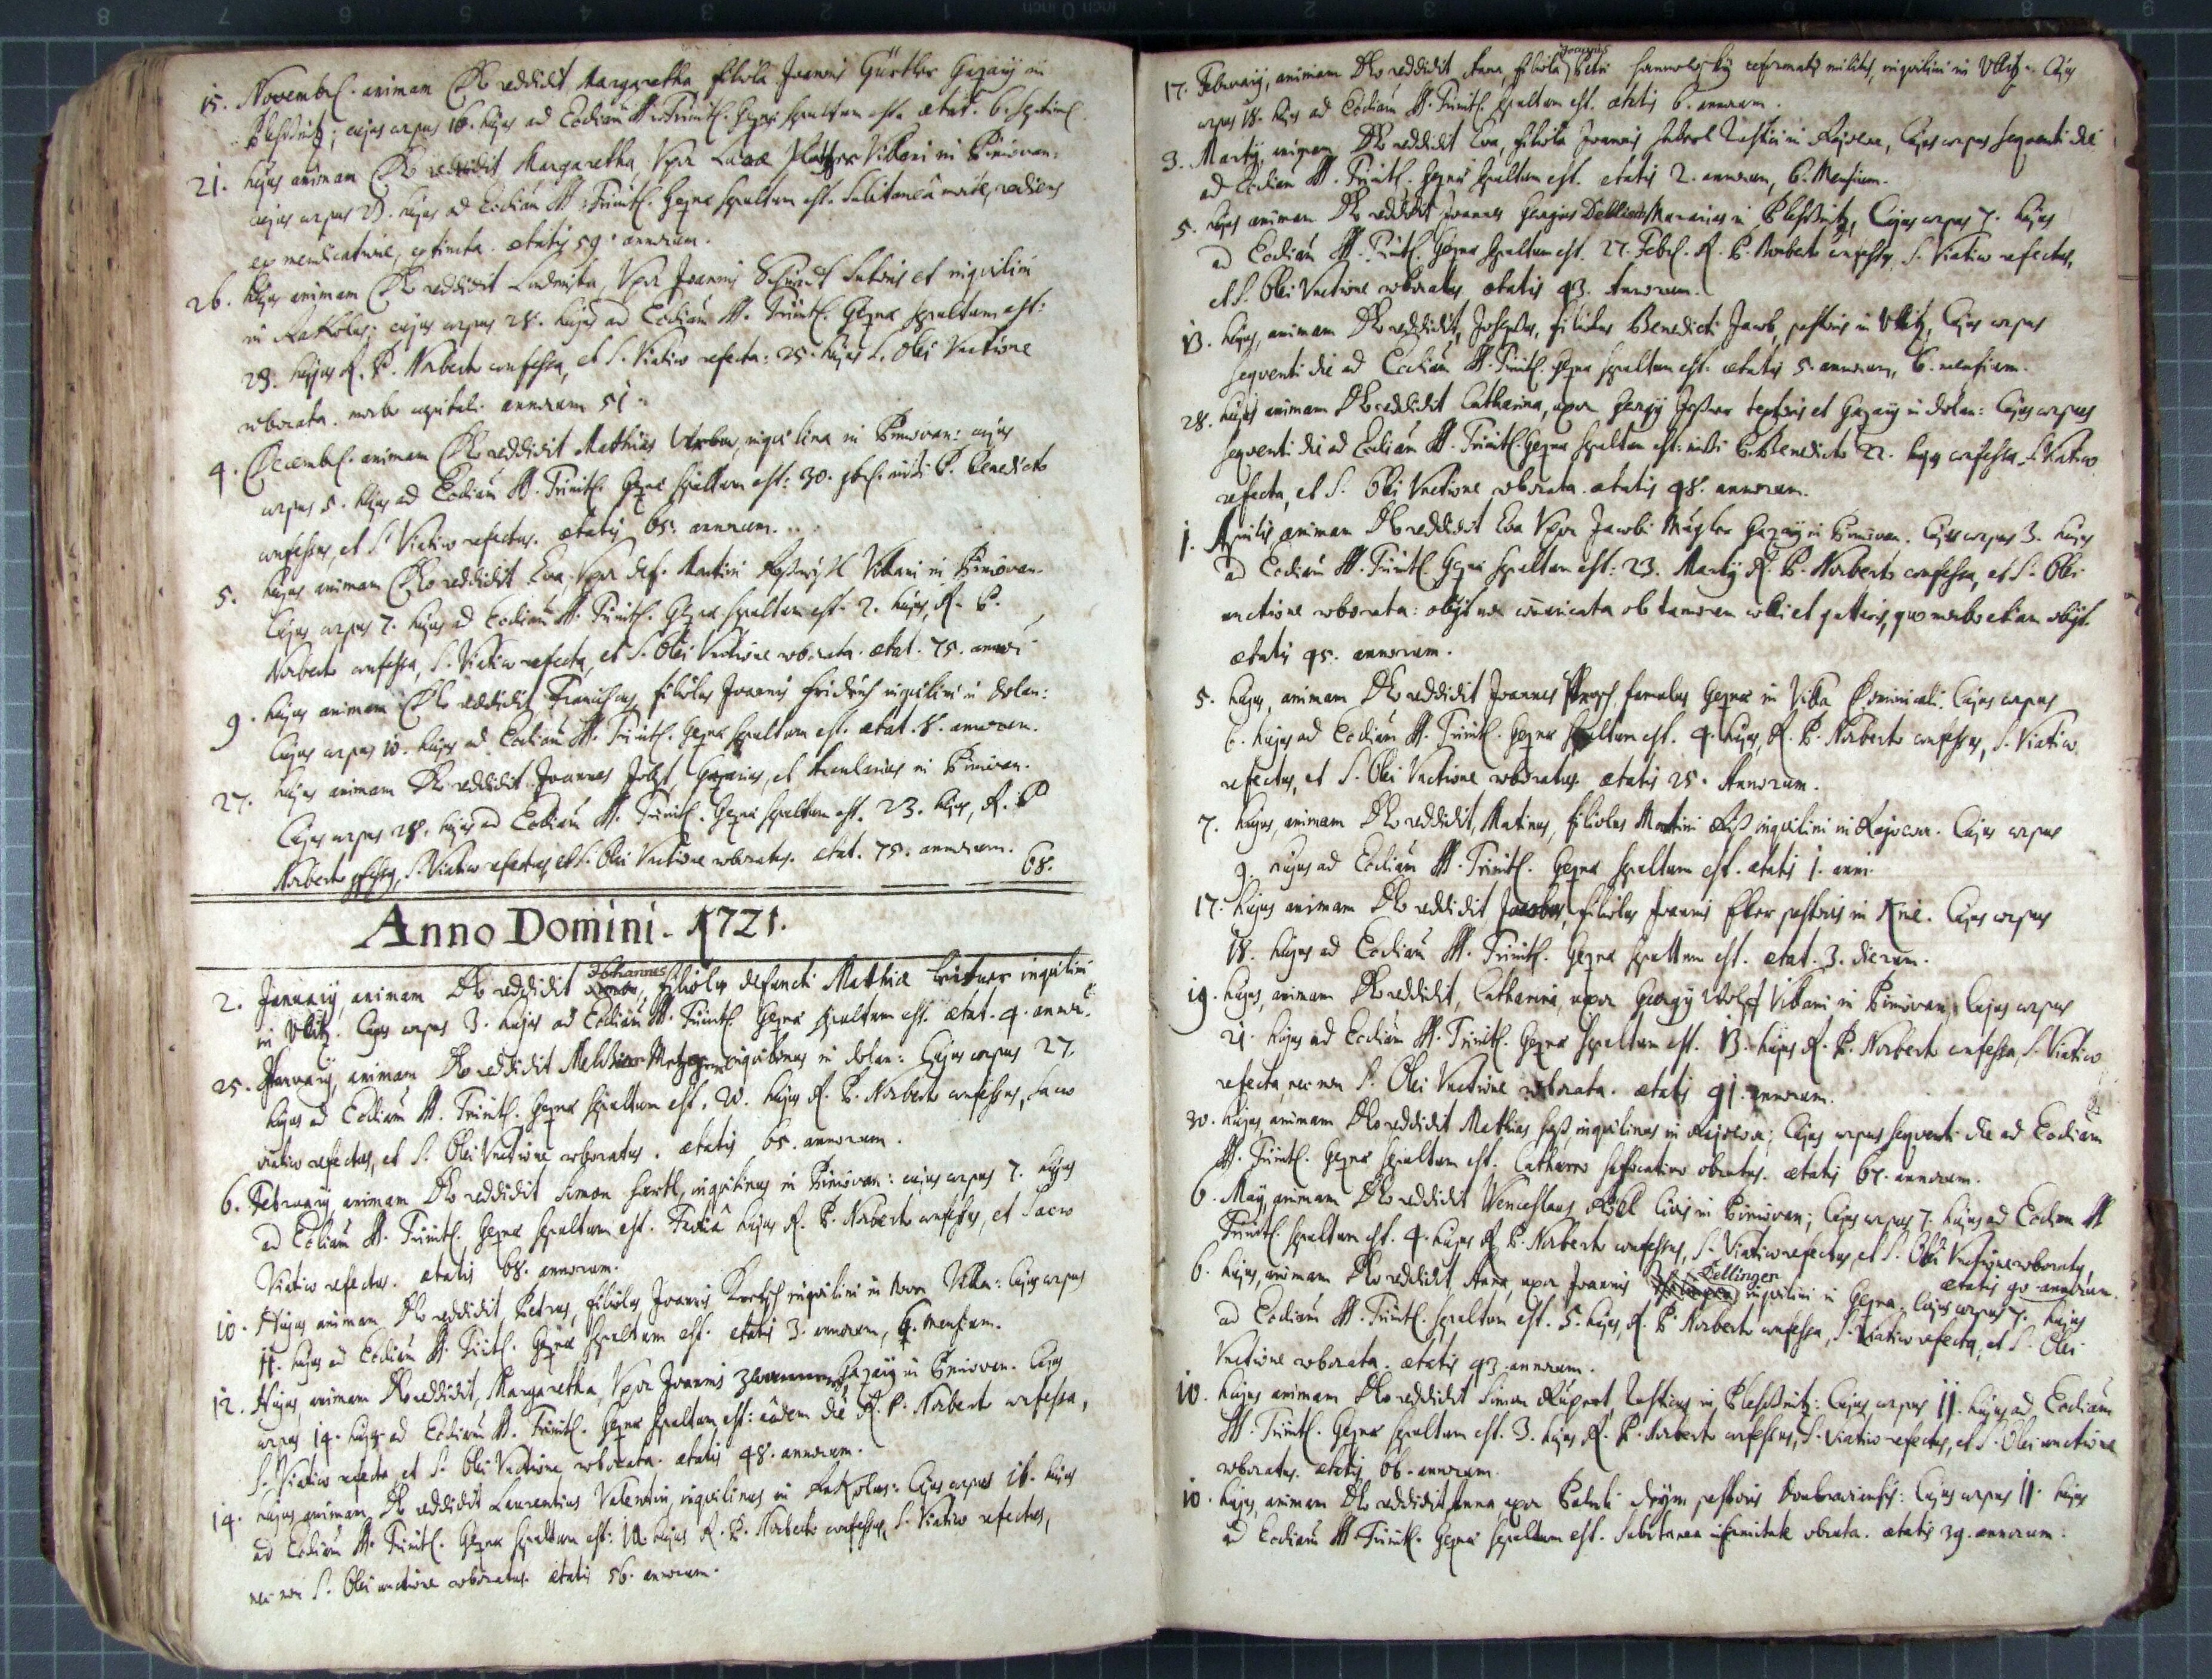 15. Novembr. animam Deo reddidit Margaretha filiola Joannis Gürtler Gazarij in
cujus corpus 16. hujus ad Ecclium SS. Trinit. Gezna sepultum est. ætat. 6. Septim.
21. hujus animam Deo reddidit Margaretha, Uxor Lucæ Villani in Brniovan:
cujus corpus 23. hujus ad Ecclium SS. Trinit. Gezna sepultum est. Subitanea morte, rediens
ex mendicatione, extincta. ætatis 59. annorum.
26. hujus animam Deo reddidit Ludmila, Uxor Joannis Schmidt Sutoris et inquilini
in Rakolus; cujus corpus 28. hujus ad Ecclium SS. Trinit. Gezna sepultum est:
23. hujus R. P. Norberto confessa, et S. Viatico refecta: 25. hujus S. Olei Unctione
roborata. morbo capitali. annorum 51.
4. Decembr. animam Deo reddidit Mathias Urban, inquilinus in Brniovan: cujus
corpus 5. hujus ad Ecclium SS. Trinit. Gezna sepultum est: 30. 9br. P. Benedicto
confessus, et S. Viatico refectus. ætatis 65. annorum.
5. hujus animam Deo reddidit Eva, Uxor def. Martini Villani in Brniovan.
Cujus corpus 7. hujus ad Ecclium SS. Trinit. Gezna sepultum est. 2. hujus, R. P.
Norberto confessa, S. Viatico refecta, et S. Olei Unctione roborata. ætat. 75. annor.
9. hujus animam Deo reddidit Franciscus, filiolus Joannis Fridrich inquilini in Dolan:
Cujus corpus 10. hujus ad Ecclium SS. Trinit. Gezna sepultum est. ætat. 8. annorum.
27. hujus animam Deo reddidit Joannes Jobst, Gazarius, et in Brniovan.
Cujus corpus 28. hujus ad Ecclium SS. Trinit. Gezna sepultum est. 23. hujus, R. P.
Norberto confessus, S. Viatico refectus, et S. Olei Unctione roboratus. ætat. 75. annorum.
68.
Anno Domini. 1721.
2. Januarij, animam Deo reddidit Johannes, filiolus defuncti Mathiæ inquilini
in Ullitz. Cujus corpus 3. hujus ad Ecclium SS. Trinit. Gezna sepultum est. ætat. 4. annor.
25. Januarij animam Deo reddidit Melchior inquilinus in Dolan: Cujus corpus 27.
hujus ad Ecclium SS. Trinit. Gezna sepultum est. 20. hujus R. P. Norberto confessus, Sacro
viatico refectus, et S. Olei Unctione roboratus. ætatis 65. annorum.
6. Februarij animam Deo reddidit Simon Hærtl, inquilinus in Brniovan: cujus corpus 7. hujus
ad Ecclium SS. Trinit. Gezna sepultum est. hujus R. P. Norberto confessus, et Sacro
Viatico refectus. ætatis 68. annorum.
10. Hujus animam Deo reddidit, Petrus, filiolus Joannis inquilini in Nova Villa: Cujus corpus
11. hujus ad Ecclium SS. Trinit. Gezna sepultum est. ætatis 3. annorum, 4. mensium.
12. Hujus, animam Deo reddidit, Margaretha, Uxor Joannis Gazarij in Brniovan. Cujus
corpus 14. hujus ad Ecclium SS. Trinit. Gezna sepultum est: eodem die R. P. Norberto confessa,
S. Viatico refecta, et S. Olei Unctione roborata. ætatis 48. annorum.
14. hujus animam Deo reddidit Laurentius Valentin, inquilinus in Rakolus: Cujus corpus 16. hujus
ad Ecclium SS. Trinit. Gezna sepultum est: 10. hujus R. P. Norberto confessus, S. Viatico refectus,
nec non S. Olei unctione roboratus. ætatis 56. annorum.
17. Februarij, animam Deo reddidit Anna, filiola Joannis Petri reformati militis, inquilini in Ullitz. Cujus
corpus 18. hujus ad Ecclium SS. Trinit. sepultum est. ætatis 6. annorum.
3. Martij, animam Deo reddidit Eva, filiola Joannis Rustici in Rajowa, Cujus corpus sequenti die
ad Ecclium SS. Trinit. Gezna sepultum est. ætatis 2. annorum, 6. Mensium.
5. hujus animam Deo reddidit Joannes Georgius in, Cujus corpus 7. hujus
ad Ecclium SS. Trinit. Gezna sepultum est. 27. Febr. R. P. Norberto confessus, S. Viatico refectus,
et S. Olei Unctione roboratus. ætatis 43. Annorum.
13. hujus, animam Deo reddidit, Josephus, filiolus Benedicti Jacob, pastoris in Ullitz, Cujus corpus
sequenti die ad Ecclium SS. Trinit. Gezna sepultum est. ætatis 5. annorum, 6. mensium.
28. hujus animam Deo reddidit Catharina, uxor Georgij textoris et Gazarij in Dolan: Cujus corpus
sequenti die ad Ecclium SS. Trinit. Gezna sepultum est: P. Benedicto 22. hujus confessa, S. Viatico
refecta, et S. Olei Unctione roborata. ætatis 48. annorum.
1. Aprilis, animam Deo reddidit Eva Uxor Jacobi Gazarij in Brniovan. Cujus corpus 3. hujus
ad Ecclium SS. Trinit. Gezna sepultum est: 23. Martij R. P. Norberto confessa, et S. Olei
unctione roborata: obijt non comunicata ob tumorem colli et gutturis, quo morbo etiam obijt.
ætatis 45. annorum.
5. hujus, animam Deo reddidit Joannes famulus Gezna in Villa Dominicali. Cujus corpus
6. hujus ad Ecclium SS. Trinit. Gezna sepultum est. 4. hujus, R. P. Norberto confessus, S. Viatico
refectus, et S. Olei Unctione roboratus. ætatis 25. Annorum.
7. hujus, animam Deo reddidit, Matinus, filiolus Martini inquilini in Rajowa. Cujus corpus
9. hujus ad Ecclium SS. Trinit. Gezna sepultum est. ætatis 1. anni.
17. hujus animam Deo reddidit Jacobus, filiolus Joannis pastoris in Knie. Cujus corpus
18. hujus ad Ecclium SS. Trinit. Gezna sepultum est. ætat. 3. dierum.
19. hujus, animam Deo reddidit, Catharina, uxor Georgij Wolff Villani in Brniovan; Cujus corpus
21. hujus ad Ecclium SS. Trinit. Gezna sepultum est. 13. hujus R. P. Norberto confessa, S. Viatico
refecta, nec non S. Olei Unctione roborata. ætatis 41. annorum.
30. hujus animam Deo reddidit Mathias inquilinus in Rajowa; Cujus corpus sequenti die ad Ecclium
SS. Trinit. Gezna sepultum est. Catharro suffocativo obrutus. ætatis 67. annorum.
6. Maij, animam Deo reddidit Wenceslaus Civis in Brniovan; Cujus corpus 7. hujus ad Ecclium SS.
Trinit. sepultum est. 4. hujus R. P. Norberto confessus, S. Viatico refectus, et S. Olei Unctione roboratus,
ætatis 40 annorum.
6. hujus, animam Deo reddidit Anna, uxor Joannis Dellinger inquilini in Gezna. Cujus corpus 7. hujus
ad Ecclium SS. Trinit. sepultum est. 5. hujus, R. P. Norberto confessa, S. Viatico refecta, et S. Olei
Unctione roborata. ætatis 43. annorum.
10. hujus animam Deo reddidit Simon Rupert, Rusticus in: Cujus corpus 11. hujus ad Ecclium
SS. Trinit. Gezna sepultum est. 3. hujus R. P. Norberto confessus, S. Viatico refectus, et S. Olei unctione
roboratus. ætatis 66. annorum.
10. hujus, animam Deo reddidit Anna uxor pastoris: Cujus corpus 11. hujus
ad Ecclium SS. Trinit. Gezna sepultum est. Subitanea infirmitate obruta. ætatis 39. annorum.